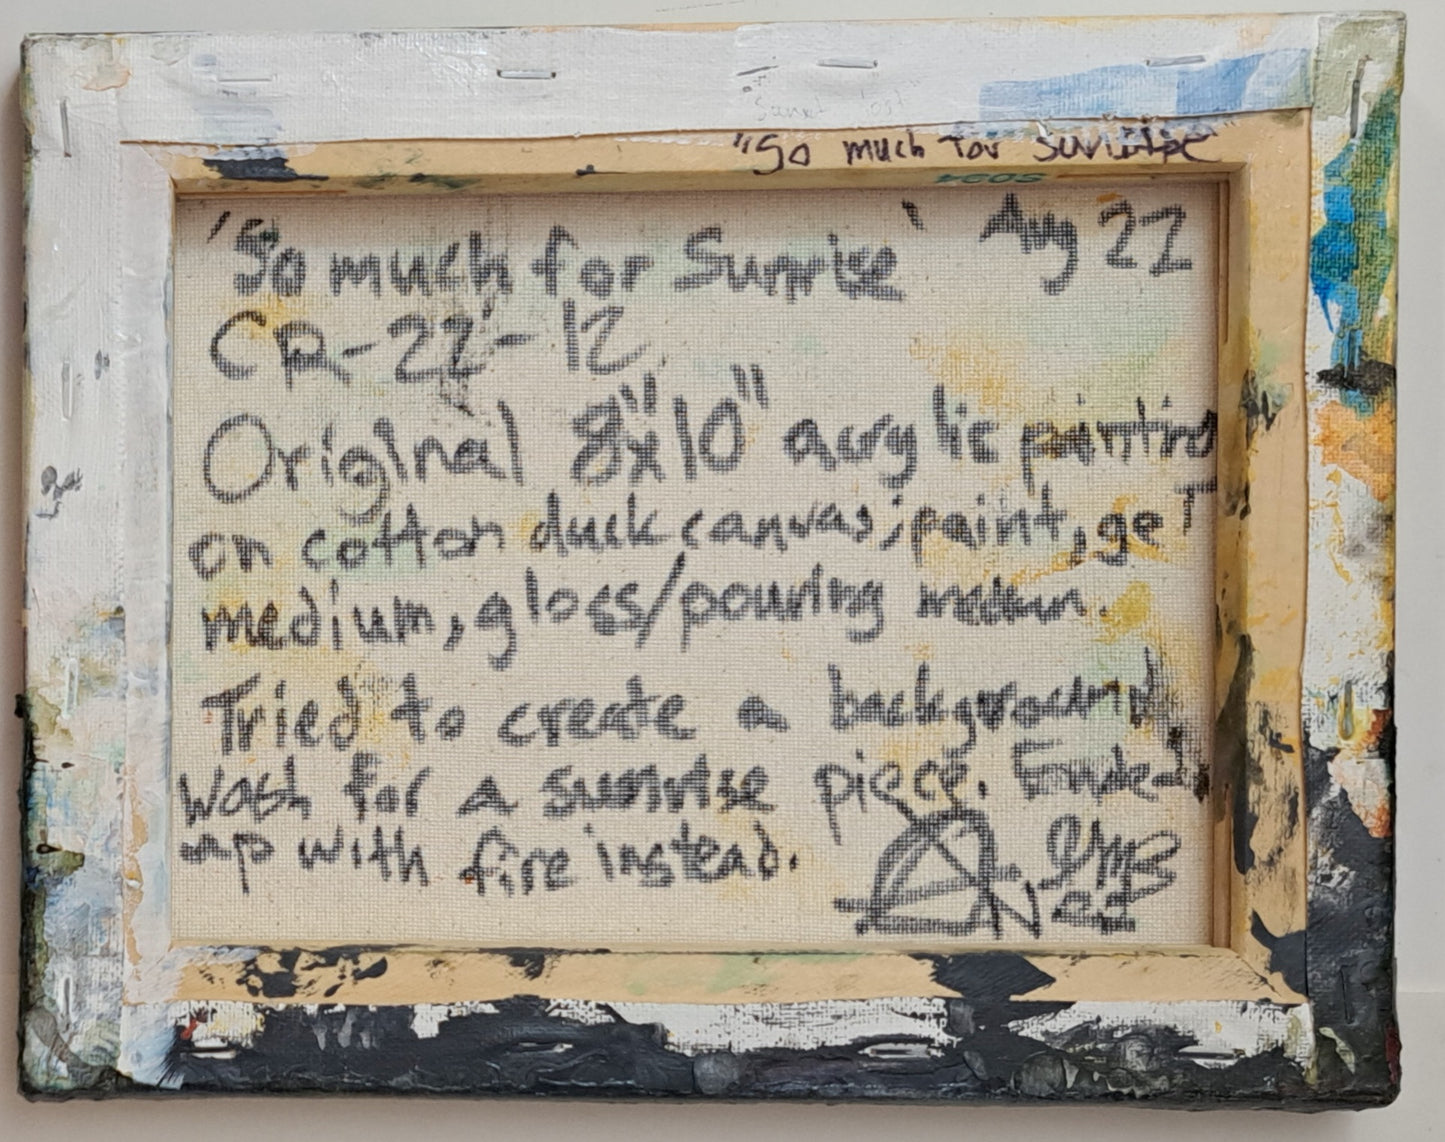 "So much for sunrise
'So much for Sunrise' Aug 22
CR-22-12
Original 8"x10" acrylic painting
on cotton duck canvas; paint, gel
medium, gloss/pouring medium.
Tried to create a background
wash for a sunrise piece. Ended
up with fire instead.